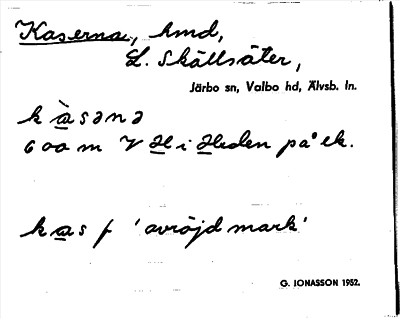 Kaserna, hmd,
L. Skällsäter,
Järbo sn, Valbo hd, Älvsb. ln.
k æ̀sənə
600 m V H i Heden på ek.
kæs f 'avröjd mark'
G. JONASSON 1952.